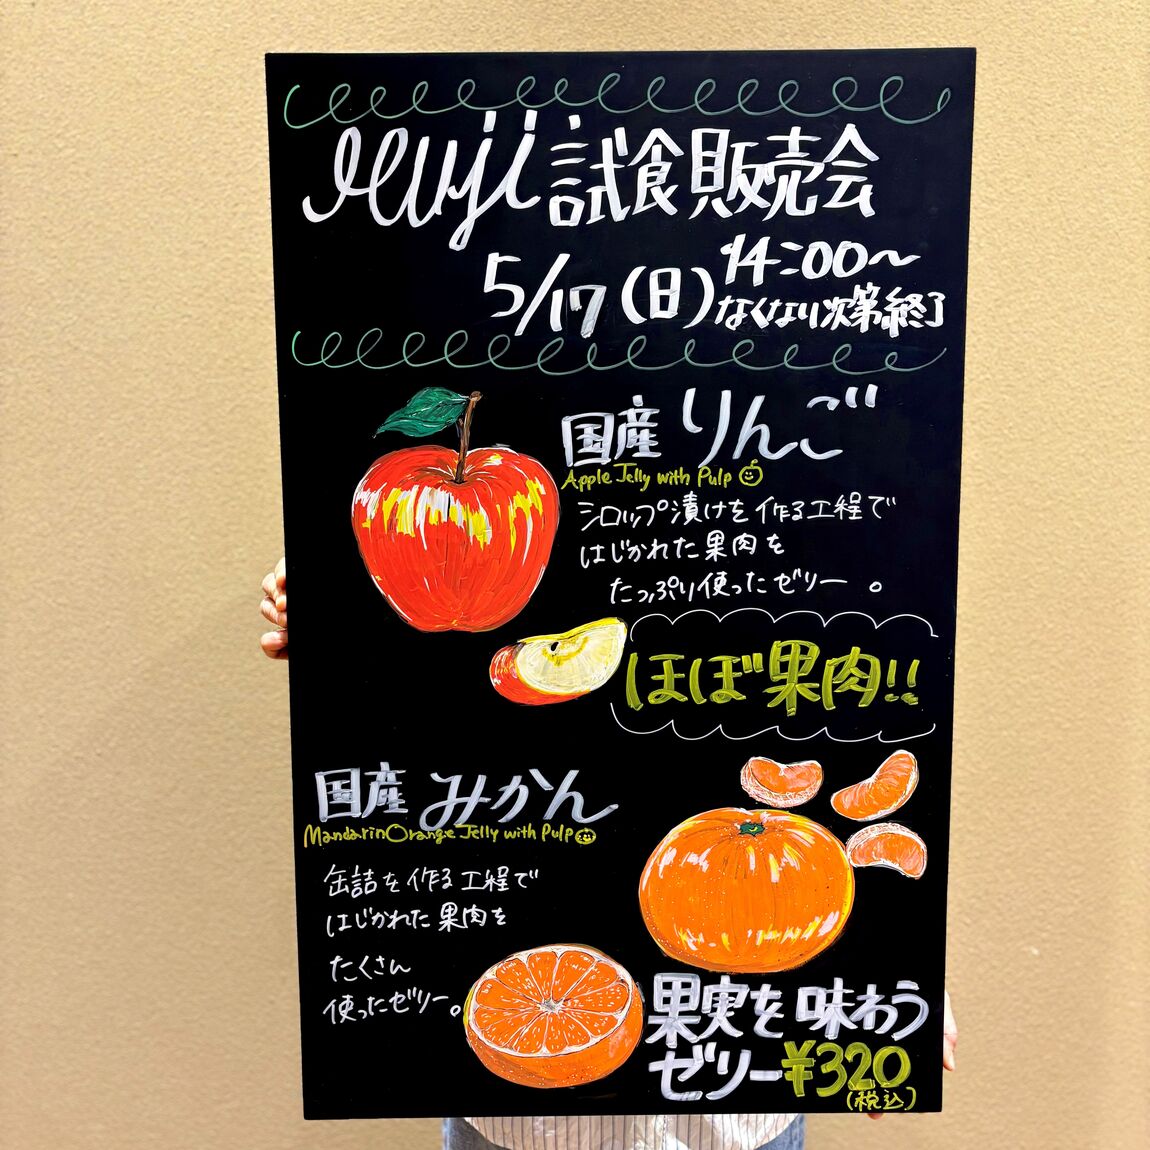 muji 試食販売会
5/17(日) 14:00〜
なくなり次第終了
国産 りんご
Apple Jelly with Pulp
シロップ漬けを作る工程で
はじかれた果肉を
たっぷり使ったゼリー。
ほぼ果肉!!
国産 みかん
Mandarin Orange Jelly with Pulp
缶詰を作る工程で
はじかれた果肉を
たくさん
使ったゼリー。
果実を味わう
ゼリー¥320
(税込)